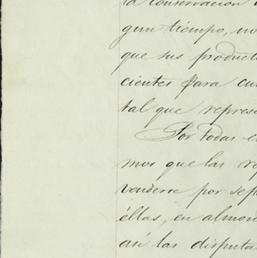 la conservacion
gun tiempo, no
que sus product
cientes para cu
tal que represe
Por todas e
mos que las re
venderse por sep
éllas, en almon
asi las disputa